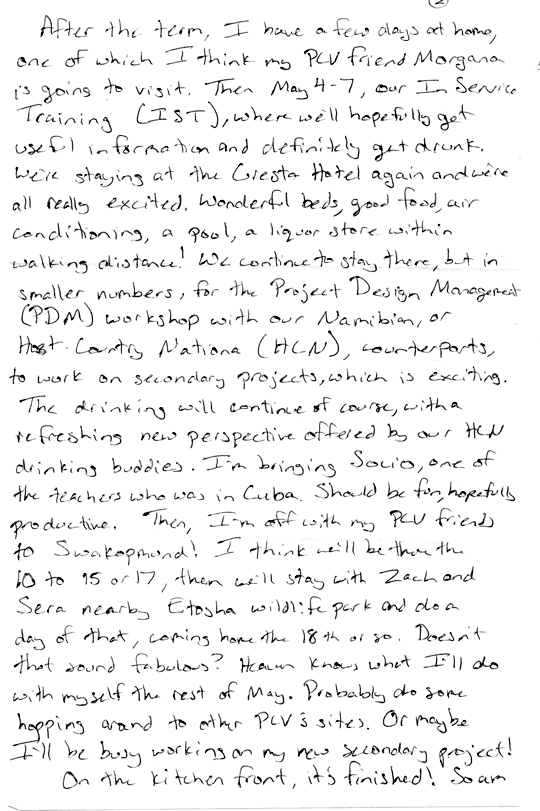 2
After the term, I have a few days at home,
one of which I think my PCV friend Morgana
is going to visit. Then May 4-7, our In Service
Training (IST), where we'll hopefully get
useful information and definitely get drunk.
We're staying at the Cresta Hotel again and we're
all really excited. Wonderful beds, good food, air
conditioning, a pool, a liquor store within
walking distance! We continue to stay there, but in
smaller numbers, for the Project Design Management
(PDM) workshop with our Namibian, or
Host Country Nationa (HCN), counterparts,
to work on secondary projects, which is exciting.
The drinking will continue of course, with a
refreshing new perspective offered by our HCN
drinking buddies. I'm bringing Socio, one of
the teachers who was in Cuba. Should be fun, hopefully
productive. Then, I'm off with my PCV friends
to Swakopmund! I think we'll be there the
10 to 15 or 17, then we'll stay with Zach and
Sera nearby Etosha wildlife park and do a
day of that, coming home the 18th or so. Doesn't
that sound fabulous? Heaven knows what I'll do
with myself the rest of May. Probably do some
hopping around to other PCV's sites. Or maybe
I'll be busy working on my new secondary project!
On the kitchen front, it's finished! So am